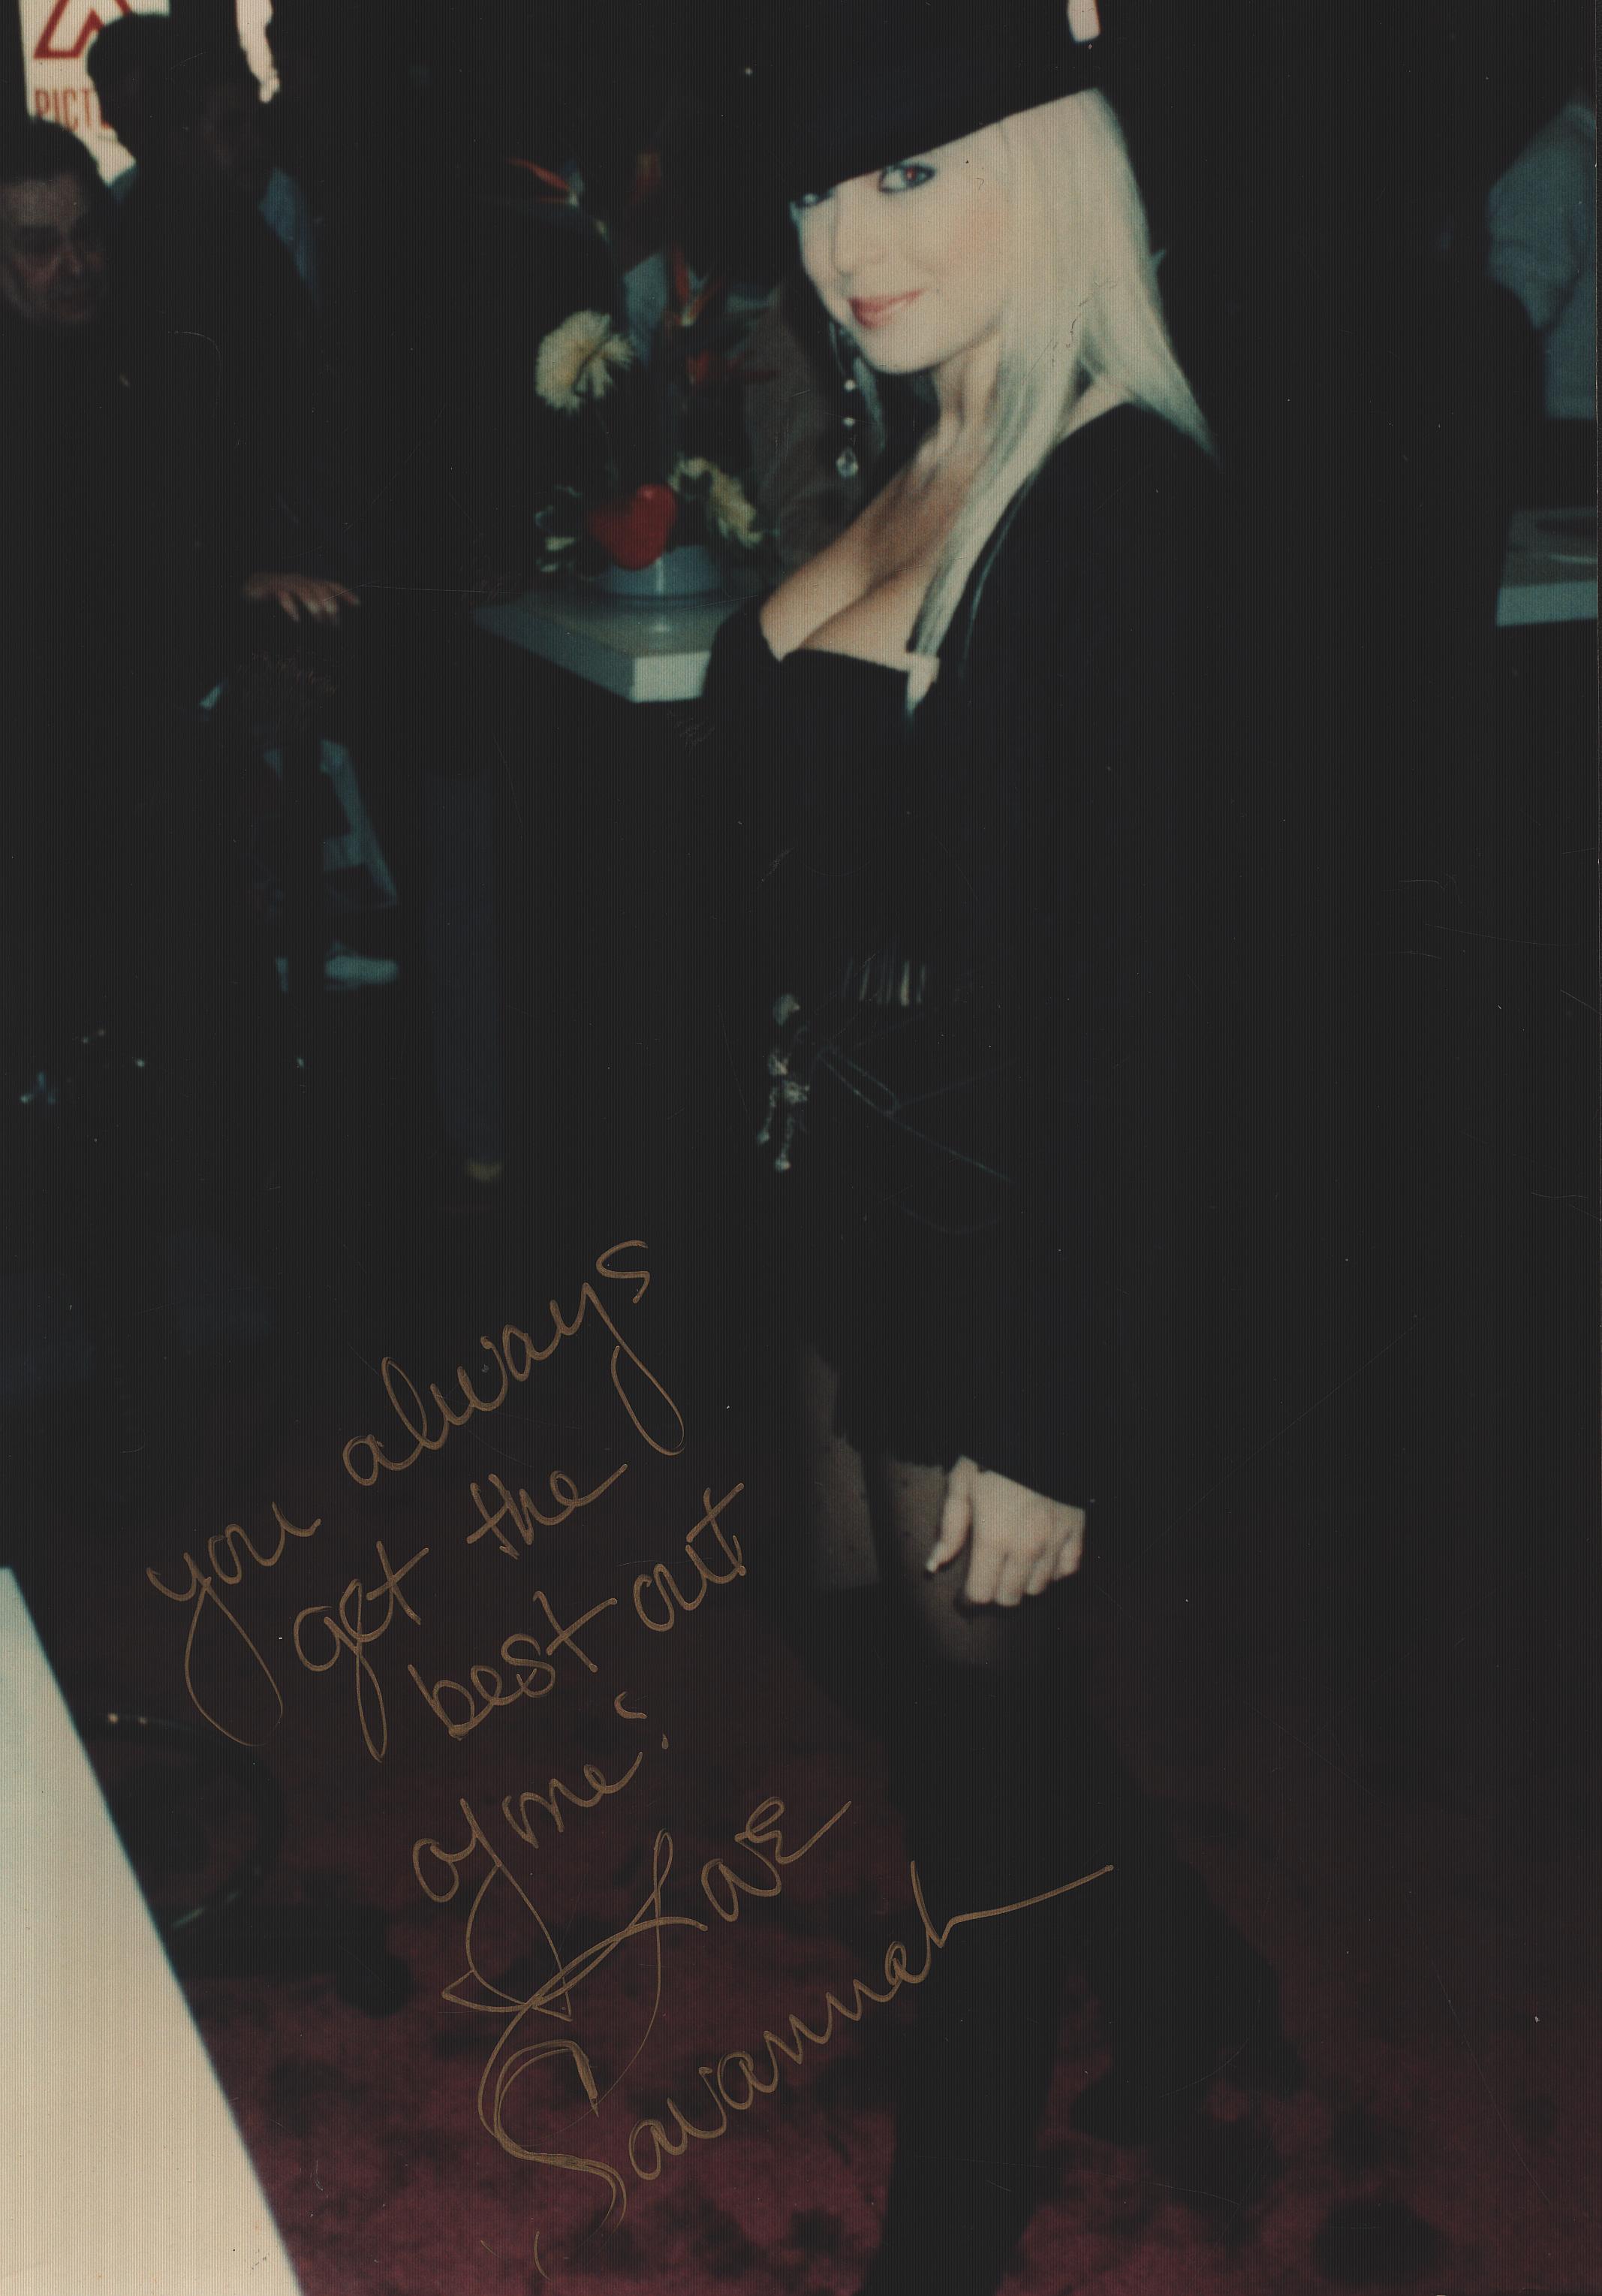 PICT
you always
get the
best out
of me!
Love
Savannah